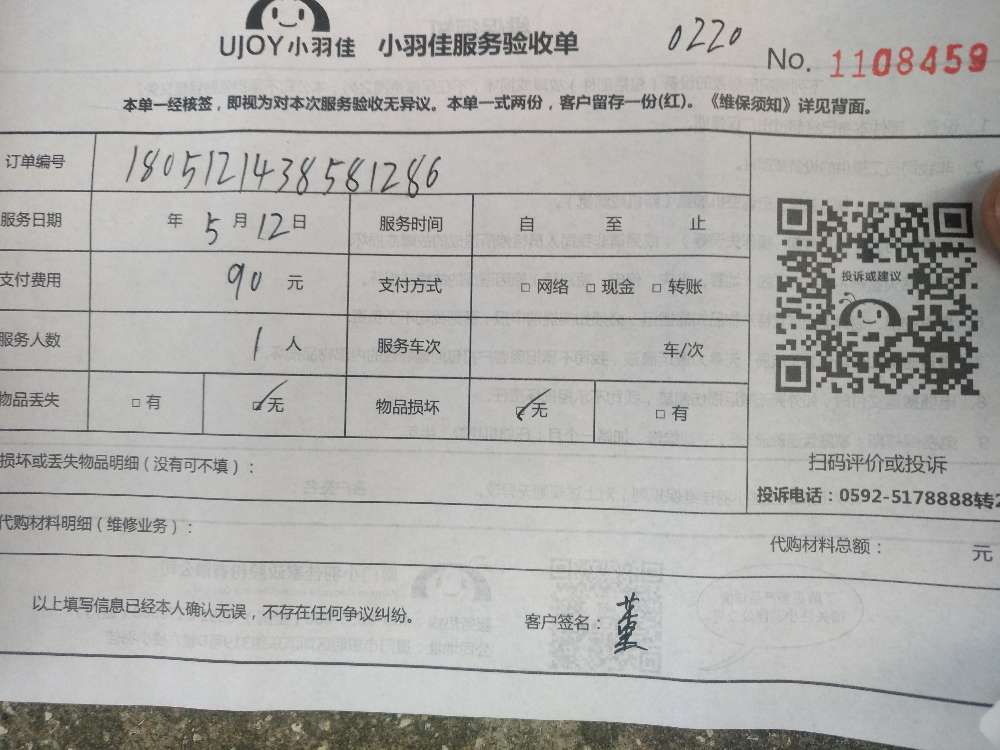 UJOY小羽佳 小羽佳服务验收单 0220 No. 1108459
本单一经核签，即视为对本次服务验收无异议。本单一式两份，客户留存一份(红)。《维保须知》详见背面。
订单编号 1805121438581286
服务日期 年 5 月 12 日 服务时间 自 至 止
支付费用 90 元 支付方式 □ 网络 □ 现金 □ 转账
服务人数 1 人 服务车次 车/次
物品丢失 □ 有 ☑ 无 物品损坏 ☑ 无 □ 有
投诉或建议
扫码评价或投诉
投诉电话：0592-5178888转2
损坏或丢失物品明细（没有可不填）：
代购材料明细（维修业务）： 代购材料总额： 元
以上填写信息已经本人确认无误，不存在任何争议纠纷。 客户签名：